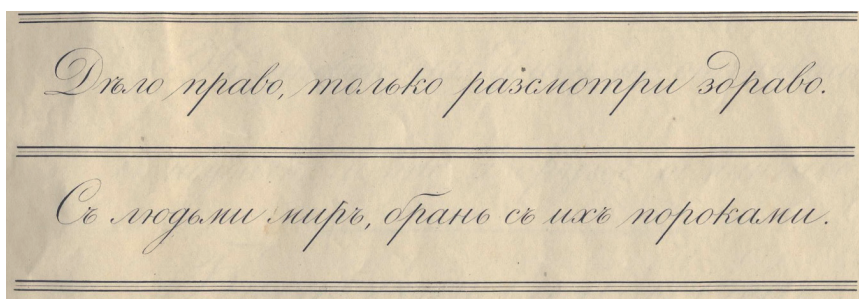 Дѣло право, только разсмотри здраво.
Съ людьми миръ, брань съ ихъ пороками.